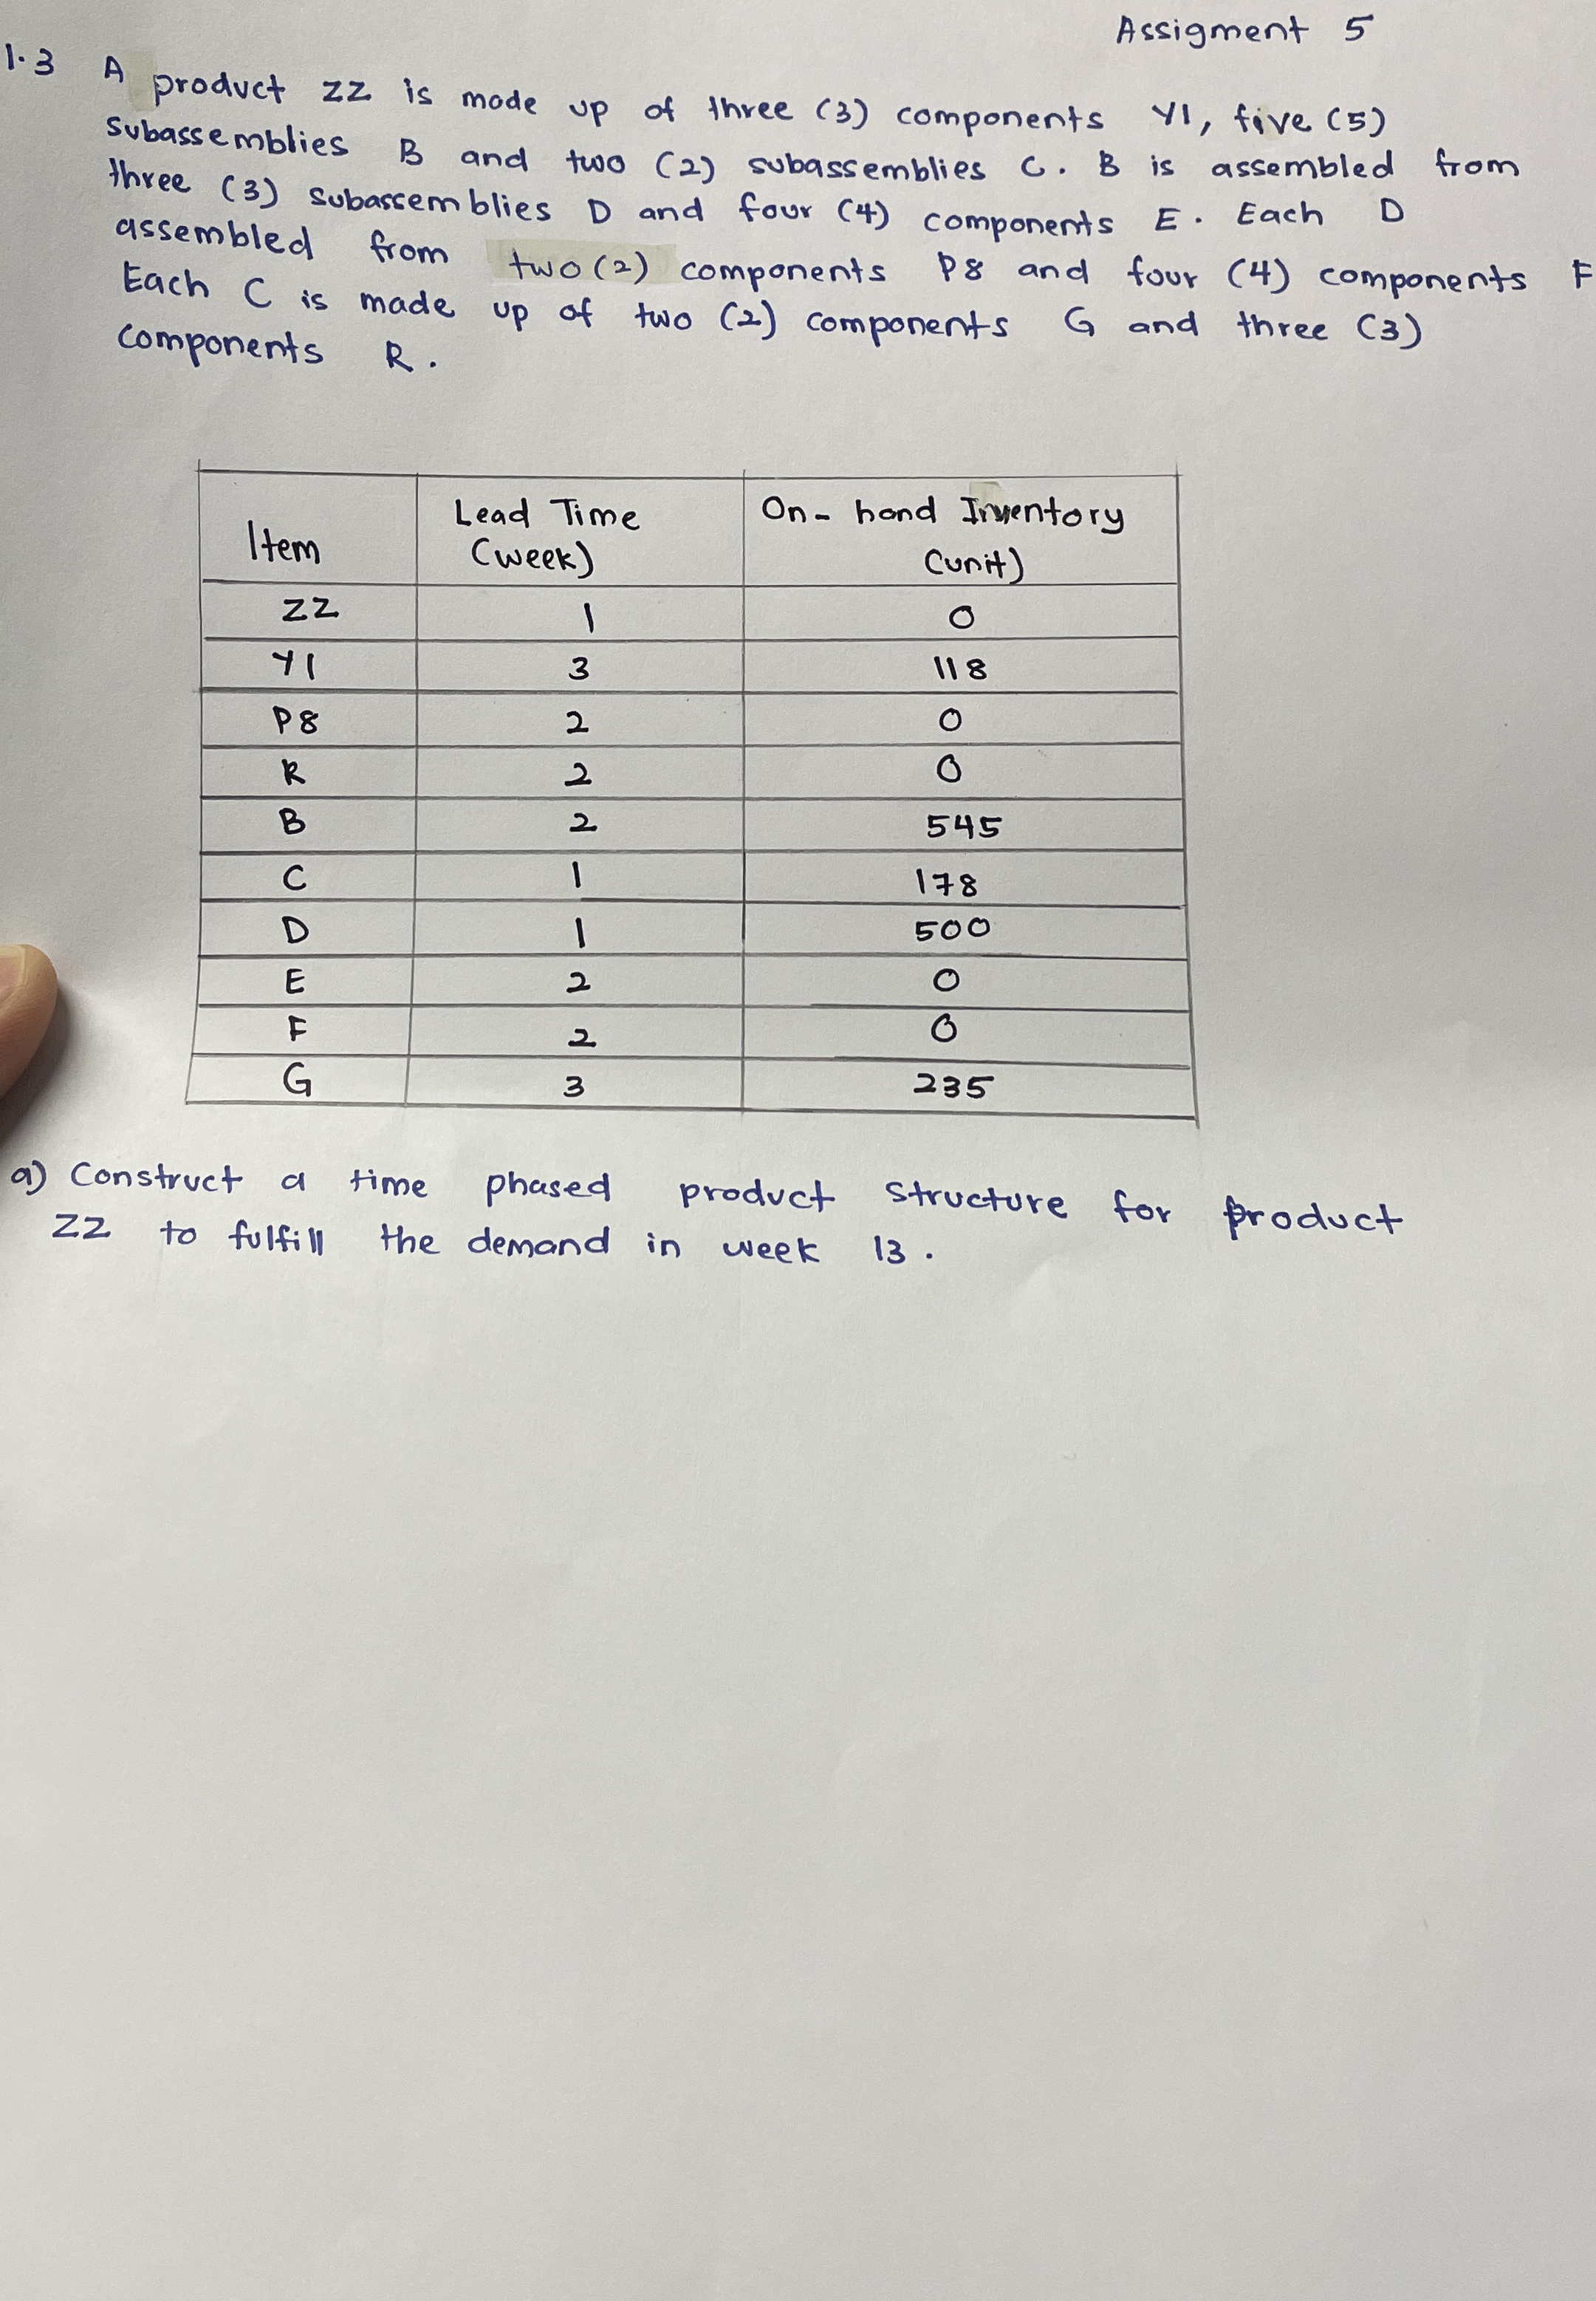 Assigment 5
1.3 A product ZZ is made up of three (3) components Y1, five (5)
subassemblies B and two (2) subassemblies C. B is assembled from
three (3) subassemblies D and four (4) components E. Each D
assembled from two (2) components P8 and four (4) components F
Each C is made up of two (2) components G and three (3)
components R.
Item Lead Time (week) On-hand Inventory (unit)
ZZ 1 0
Y1 3 118
P8 2 0
R 2 0
B 2 545
C 1 178
D 1 500
E 2 0
F 2 0
G 3 235
a) Construct a time phased product structure for product
ZZ to fulfill the demand in week 13.